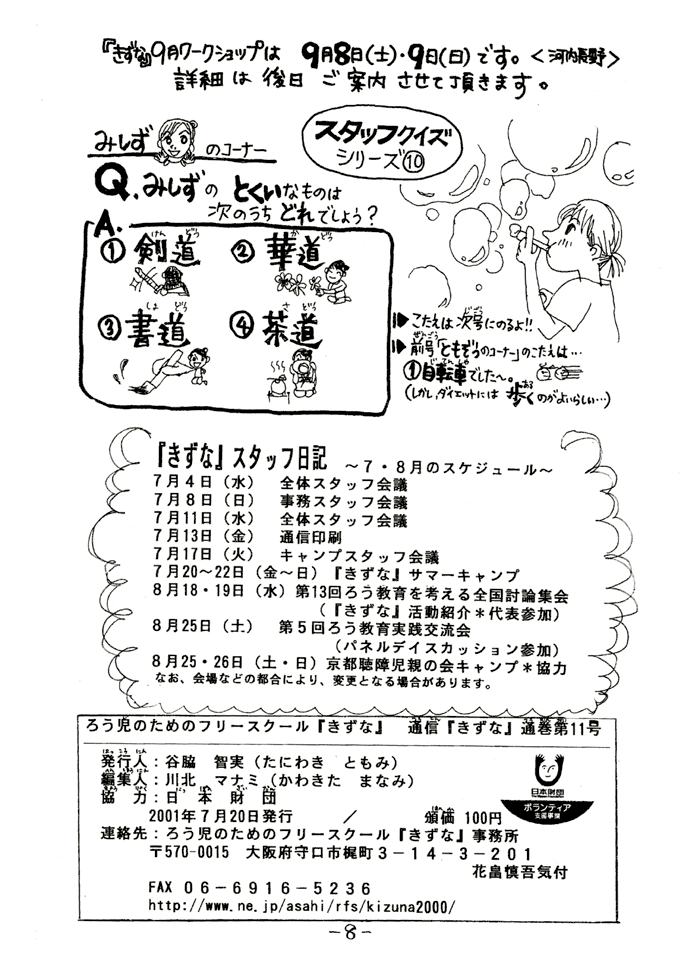 『きずな』9月ワークショップは 9月8日(土)・9日(日)です。<河内長野>
詳細は後日ご案内させて頂きます。
みしずのコーナー
スタッフクイズ
シリーズ⑩
Q.みしずの とくいなものは
次のうち どれでしょう?
A.
① 剣道 ② 華道
けん どう か どう
③ 書道 ④ 茶道
しょ どう さ どう
▶こたえは次号にのるよ!!
じごう
▶前号「ともぞうのコーナー」のこたえは…
ぜんごう
①自転車でした〜。
じてんしゃ
(しかし、ダイエットには 歩くのがよいらしい…)
ある
『きずな』スタッフ日記 ~7・8月のスケジュール~
7月4日(水) 全体スタッフ会議
7月8日(日) 事務スタッフ会議
7月11日(水) 全体スタッフ会議
7月13日(金) 通信印刷
7月17日(火) キャンプスタッフ会議
7月20~22日(金~日)『きずな』サマーキャンプ
8月18・19日(水)第13回ろう教育を考える全国討論集会
(『きずな』活動紹介*代表参加)
8月25日(土) 第5回ろう教育実践交流会
(パネルデイスカッション参加)
8月25・26日(土・日)京都聴障児親の会キャンプ*協力
なお、会場などの都合により、変更となる場合があります。
ろう児のためのフリースクール『きずな』 通信『きずな』通巻第11号
はっこうにん
発行人:谷脇 智実(たにわき ともみ)
へんしゅうにん
編集人:川北 マナミ(かわきた まなみ)
協 力:日本財団
2001年7月20日発行 / 頒価 100円
日本財団
ボランティア
支援事業
連絡先:ろう児のためのフリースクール『きずな』事務所
〒570-0015 大阪府守口市梶町3-14-3-201
花畠慎吾気付
FAX 06-6916-5236
http://www.ne.jp/asahi/rfs/kizuna2000/
-8-